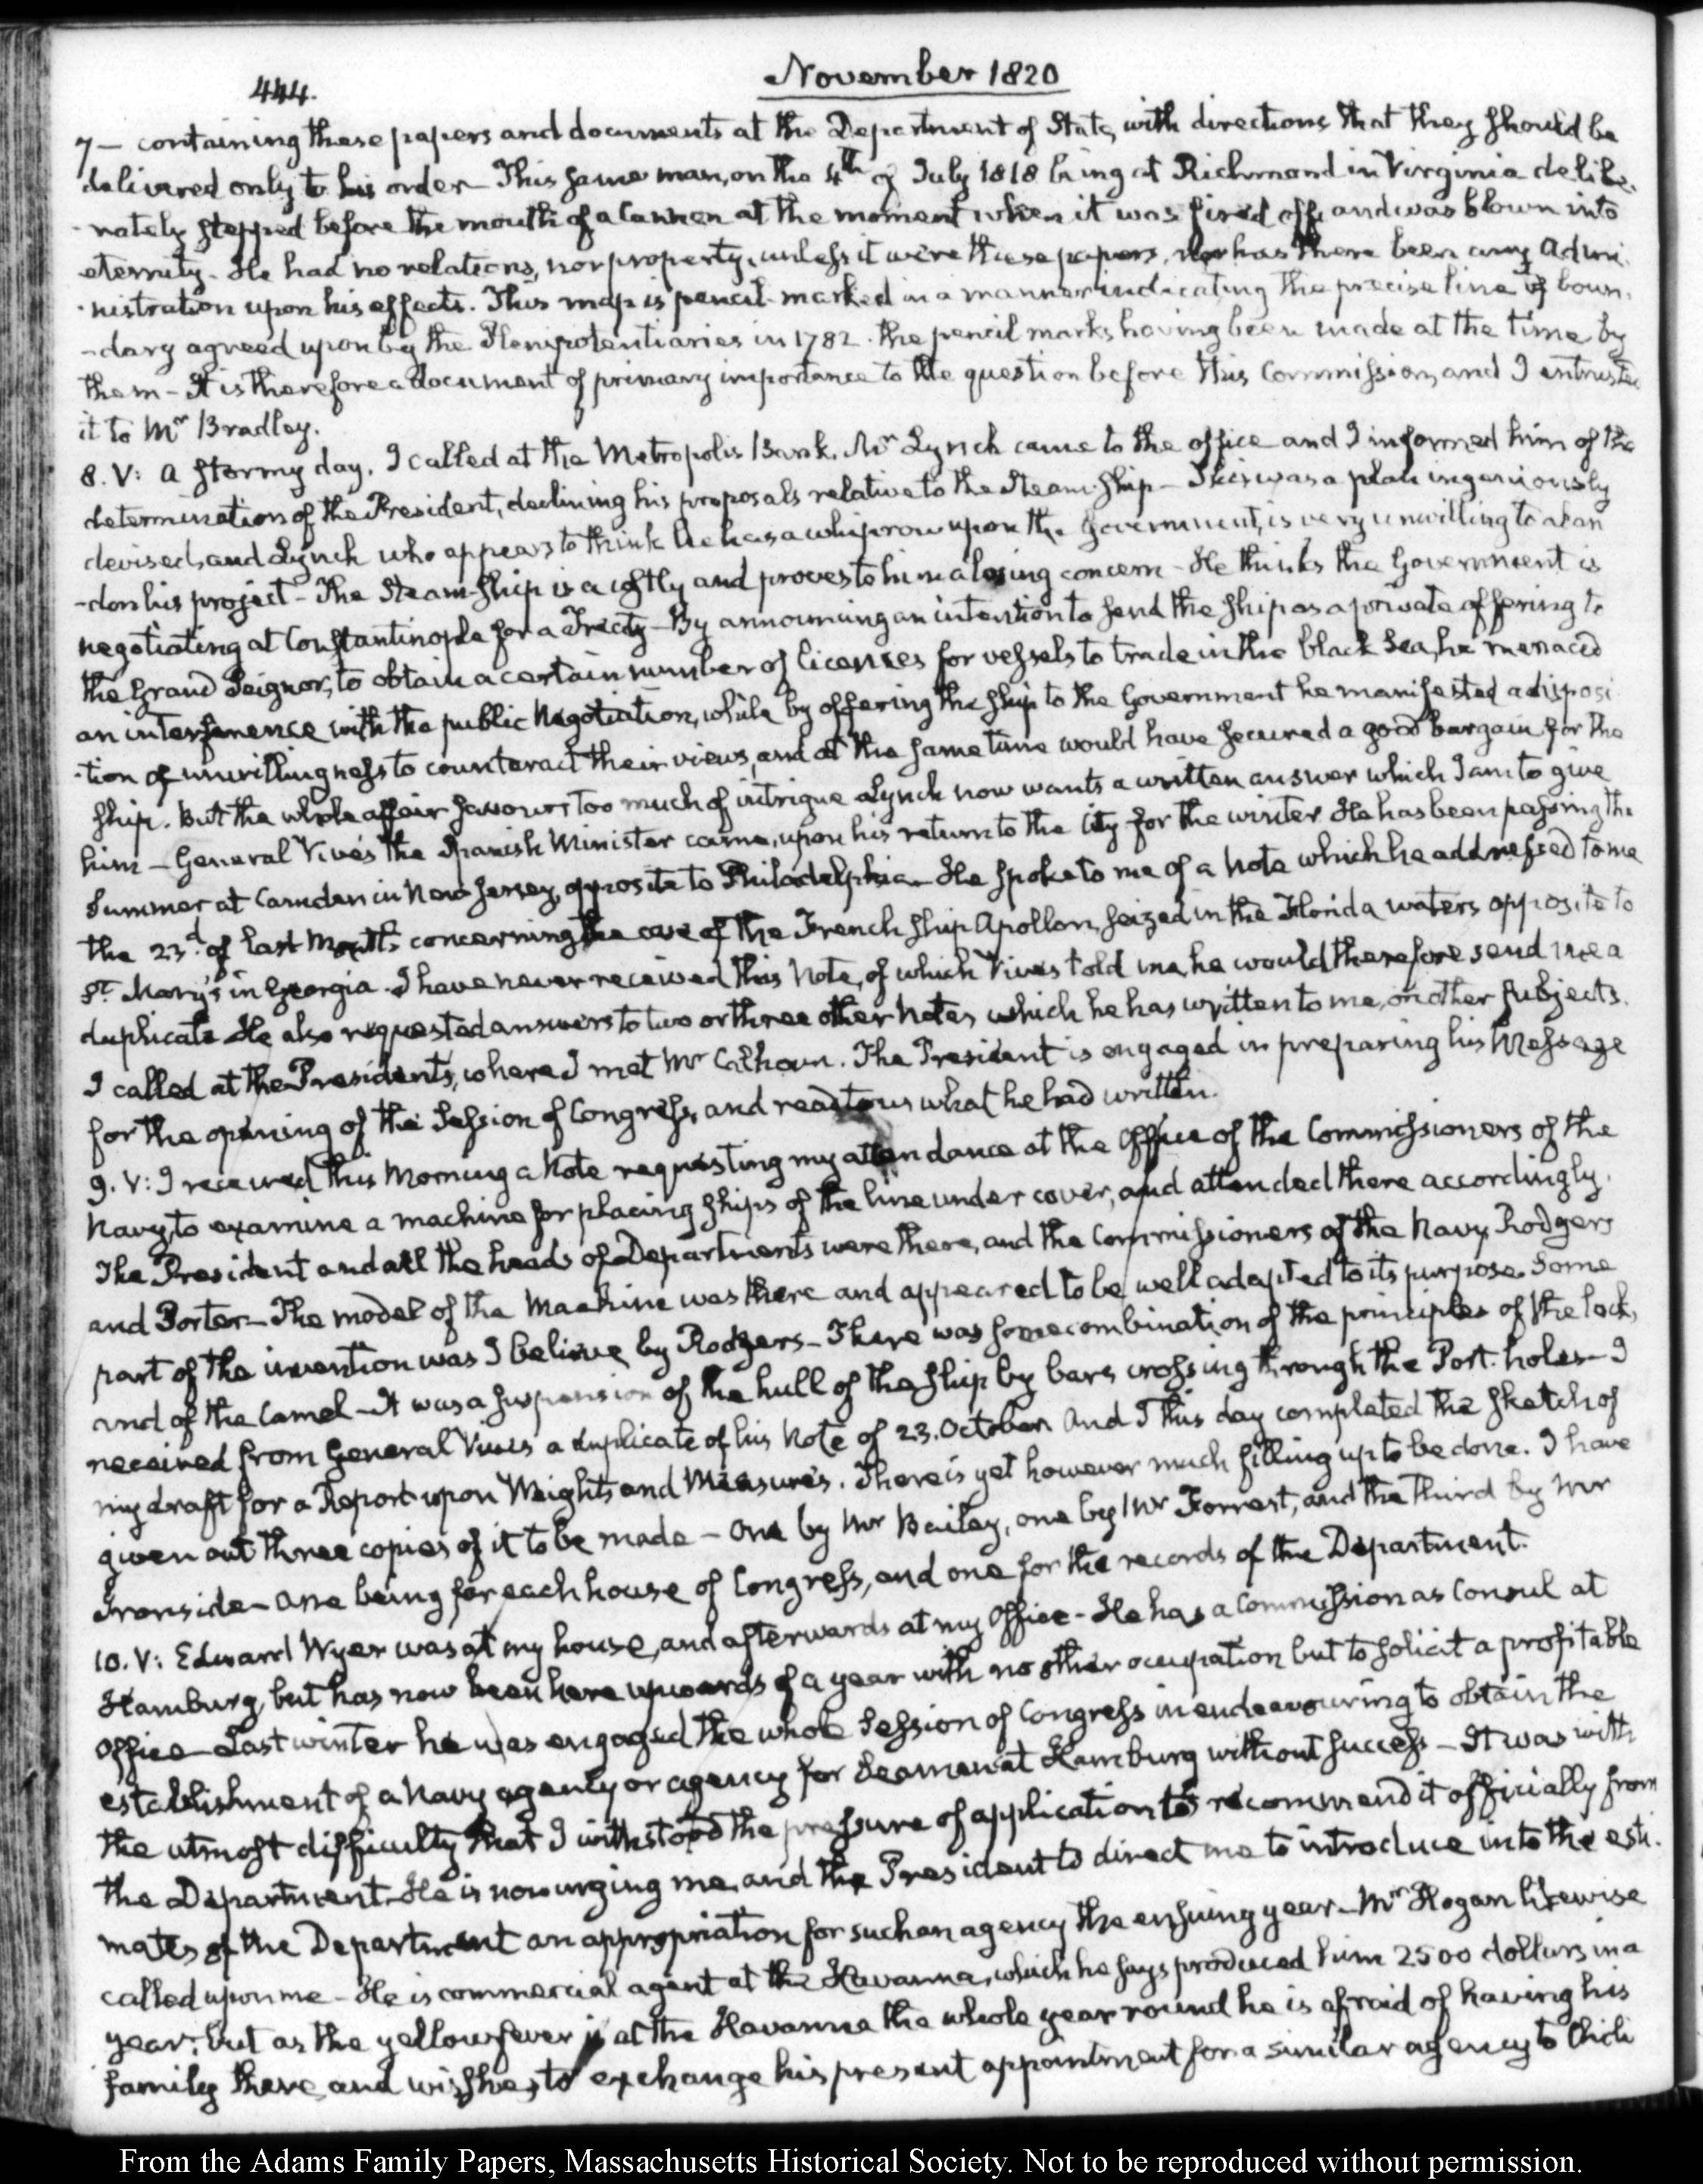 444.
November 1820
7 — containing these papers and documents at the Department of State, with directions that they should be
delivered only to his order — This same man, on the 4th of July 1818 being at Richmond in Virginia delibe-
-rately stepped before the mouth of a Cannon at the moment when it was fired off, and was blown into
eternity. He had no relations, nor property, unless it were these papers, nor has there been any Admi-
-nistration upon his effects. This map is pencil-marked in a manner indicating the precise line of boun-
-dary agreed upon by the Plenipotentiaries in 1782. the pencil marks having been made at the time by
them — It is therefore a document of primary importance to the question before this Commission, and I entrusted
it to Mr Bradley.
8. V: A stormy day. I called at the Metropolis Bank. Mr Lynch came to the office and I informed him of the
determination of the President, declining his proposals relative to the Steam-Ship — This was a plan ingeniously
devised, and Lynch who appears to think he has a whip row upon the Government, is very unwilling to aban
-don his project — The Steam-Ship is a costly and proves to him a losing concern — He thinks the Government is
negotiating at Constantinople for a Treaty — By announcing an intention to send the ship as a private offering to
the Grand Seignor, to obtain a certain number of licenses for vessels to trade in the black Sea, he menaced
an interference with the public Negotiation, while by offering the ship to the Government he manifested a disposi
-tion of unwillingness to counteract their views, and at the same time would have secured a good bargain for the
ship. But the whole affair savours too much of intrigue. Lynch now wants a written answer which I am to give
him — General Vivés the Spanish Minister came, upon his return to the City for the winter. He has been passing the
Summer at Camden in New Jersey, opposite to Philadelphia — He spoke to me of a Note which he addressed to me
the 23d of last Month concerning the case of the French ship Apollon, seized in the Florida waters opposite to
St Mary's in Georgia. I have never received this Note, of which Vives told me, he would therefore send me a
duplicate. He also requested answers to two or three other Notes which he has written to me, on other subjects.
I called at the President's, where I met Mr Calhoun. The President is engaged in preparing his Message
for the opening of the Session of Congress, and read to us what he had written.
9. V: I received this Morning a Note requesting my attendance at the Office of the Commissioners of the
Navy, to examine a machine for placing ships of the line under cover, and attended there accordingly.
The President and all the heads of Departments were there, and the Commissioners of the Navy, Rodgers
and Porter — The model of the Machine was there and appeared to be well adapted to its purpose. Some
part of the invention was I believe by Rodgers — There was some combination of the principles of the lock,
and of the Camel — It was a suspension of the hull of the ship by bars crossing through the Port-holes — I
received from General Vives a duplicate of his Note of 23. October. And I this day completed the sketch of
my draft for a Report upon Weights and Measures. There is yet however much filling up to be done. I have
given out three copies of it to be made — One by Mr Bailey, one by Mr Forrest, and the third by Mr
Ironside — One being for each house of Congress, and one for the records of the Department.
10. V: Edward Wyer was at my house, and afterwards at my Office — He has a Commission as Consul at
Hamburg, but has now been here upwards of a year with no other occupation but to solicit a profitable
Office — Last winter he was engaged the whole Session of Congress in endeavouring to obtain the
establishment of a Navy agency or agency for Seamen at Hamburg without success — It was with
the utmost difficulty that I withstood the pressure of application to recommend it officially from
the Department. He is now urging me and the President to direct me to introduce into the esti-
mates of the Department an appropriation for such an agency the ensuing year — Mr Hogan likewise
called upon me — He is commercial agent at the Havanna, which he says produced him 2500 dollars in a
year; but as the yellow fever is at the Havanna the whole year round he is afraid of having his
family there, and wishes to exchange his present appointment for a similar agency to Chili
From the Adams Family Papers, Massachusetts Historical Society. Not to be reproduced without permission.